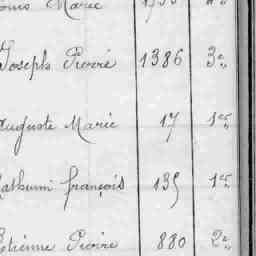 Marie
Joseph Pierre 1386 3e
Auguste Marie 17 1er
Mathurin françois 135 1er
Etienne Pierre 880 2e